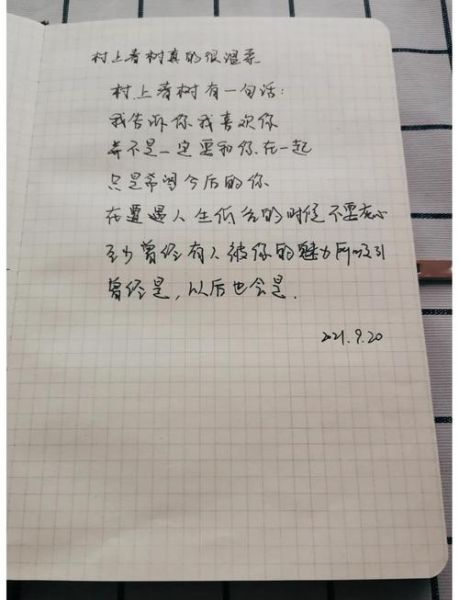 村上春树真的很温柔
村上春树有一句话：
我告诉你我喜欢你
并不是一定要和你在一起
只是希望今后的你
在遭遇人生低谷的时候不要灰心
至少曾经有人被你的魅力所吸引
曾经是，以后也会是．
2021.9.20